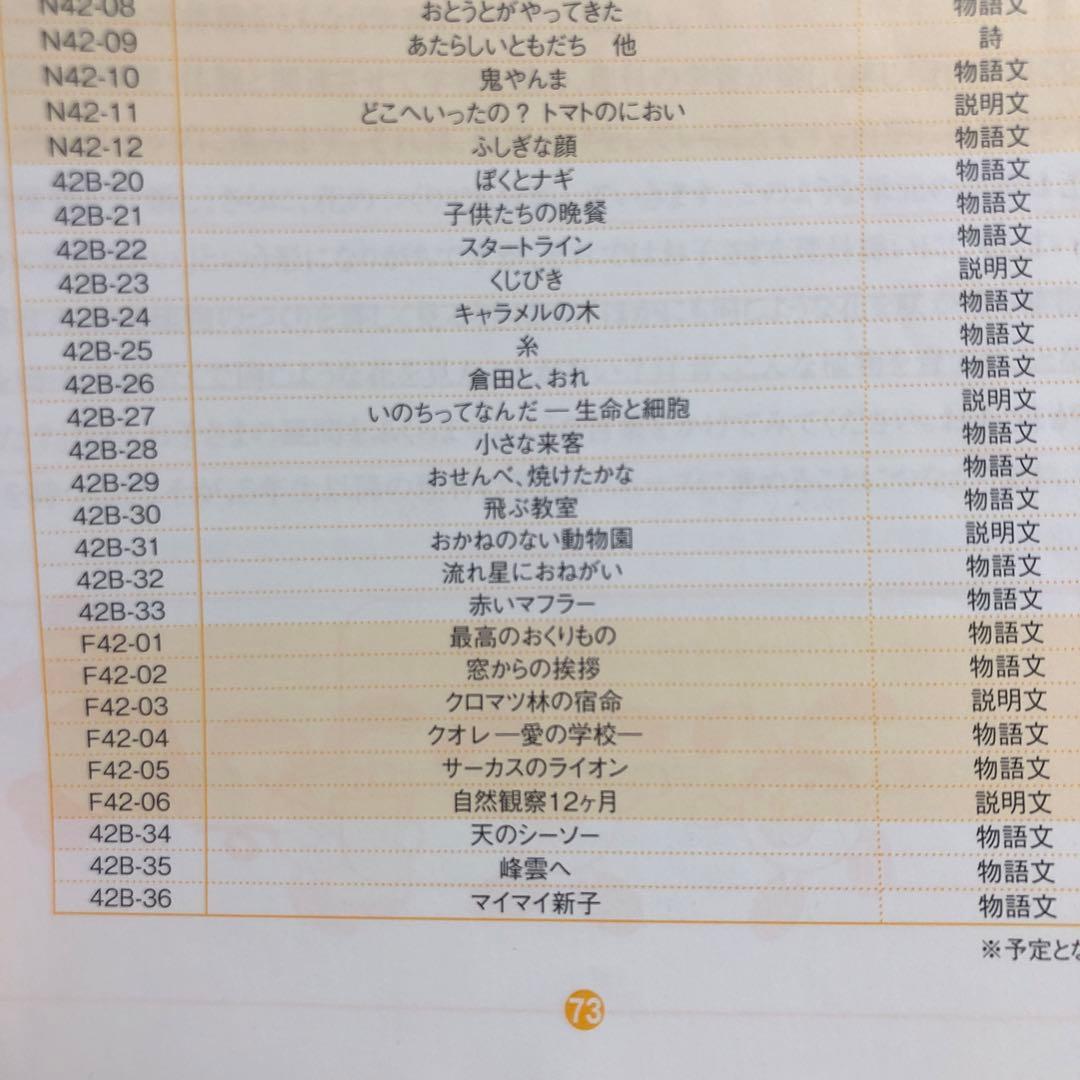 N42-08 おとうとがやってきた 物語文
N42-09 あたらしいともだち 他 詩
N42-10 鬼やんま 物語文
N42-11 どこへいったの？ トマトのにおい 説明文
N42-12 ふしぎな顔 物語文
42B-20 ぼくとナギ 物語文
42B-21 子供たちの晩餐 物語文
42B-22 スタートライン 物語文
42B-23 くじびき 説明文
42B-24 キャラメルの木 物語文
42B-25 糸 物語文
42B-26 倉田と、おれ 物語文
42B-27 いのちってなんだ ― 生命と細胞 説明文
42B-28 小さな来客 物語文
42B-29 おせんべ、焼けたかな 物語文
42B-30 飛ぶ教室 物語文
42B-31 おかねのない動物園 説明文
42B-32 流れ星におねがい 物語文
42B-33 赤いマフラー 物語文
F42-01 最高のおくりもの 物語文
F42-02 窓からの挨拶 物語文
F42-03 クロマツ林の宿命 説明文
F42-04 クオレ ―愛の学校― 物語文
F42-05 サーカスのライオン 物語文
F42-06 自然観察12ヶ月 説明文
42B-34 天のシーソー 物語文
42B-35 峰雲へ 物語文
42B-36 マイマイ新子 物語文
※予定とな
73